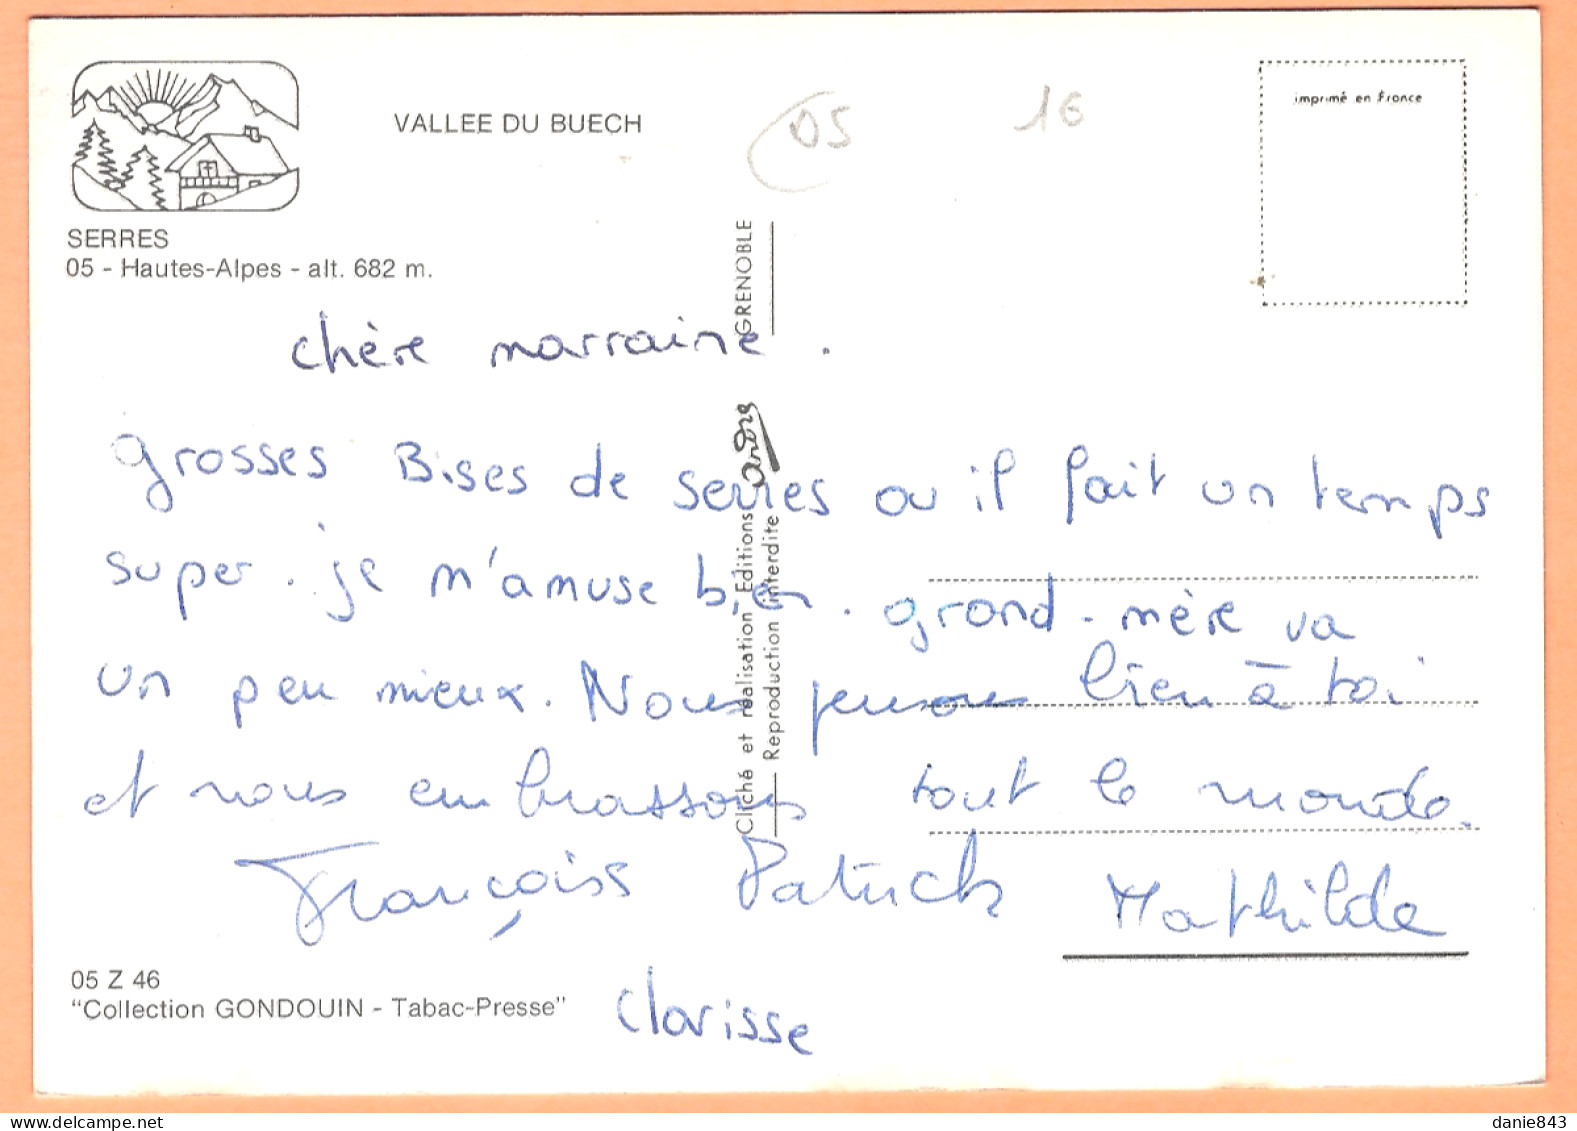 VALLEE DU BUECH
05
16
imprimé en France
SERRES
05 - Hautes-Alpes - alt. 682 m.
GRENOBLE
chère marraine.
grosses Bises de serres ou il fait un temps
super. je m'amuse bien. grand-mère va
un peu mieux. Nous pensons bien à toi
et nous embrassons tout le monde.
Françoise Patrick Mathilde
Clarisse
Cliché et réalisation Editions andré
Reproduction interdite
05 Z 46
"Collection GONDOUIN - Tabac-Presse"
danie843